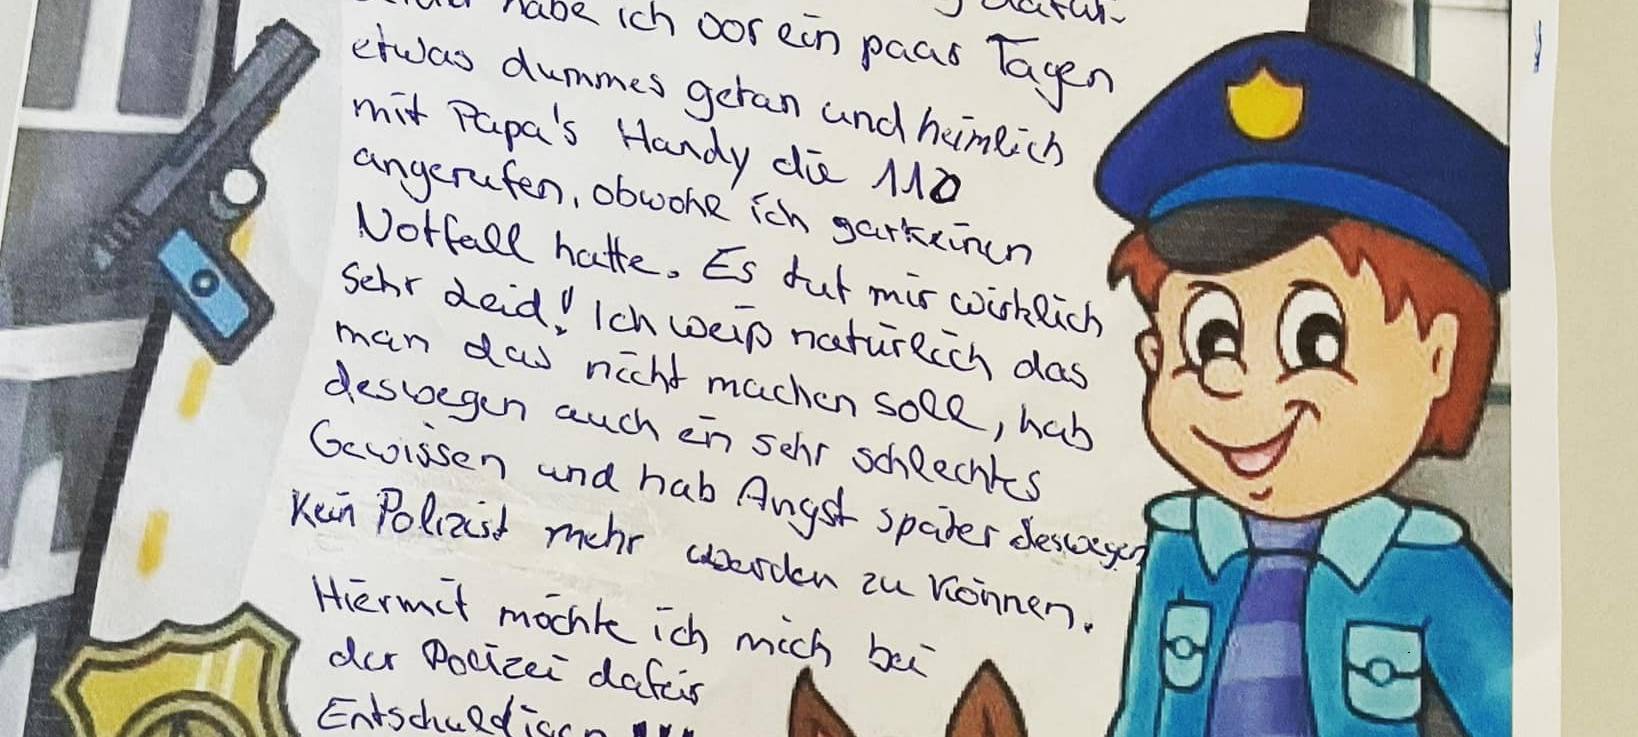 habe ich vor ein paar Tagen
etwas dummes getan und heimlich
mit Papa's Handy die 110
angerufen, obwohl ich garkeinen
Notfall hatte. Es tut mir wirklich
Sehr Leid! Ich weiß natürlich das
man das nicht machen soll, hab
deswegen auch ein sehr schlechtes
Gewissen und hab Angst später deswegen
Kein Polizist mehr werden zu können.
Hiermit möchte ich mich bei
der Polizei dafür
Entschuldigen !!!